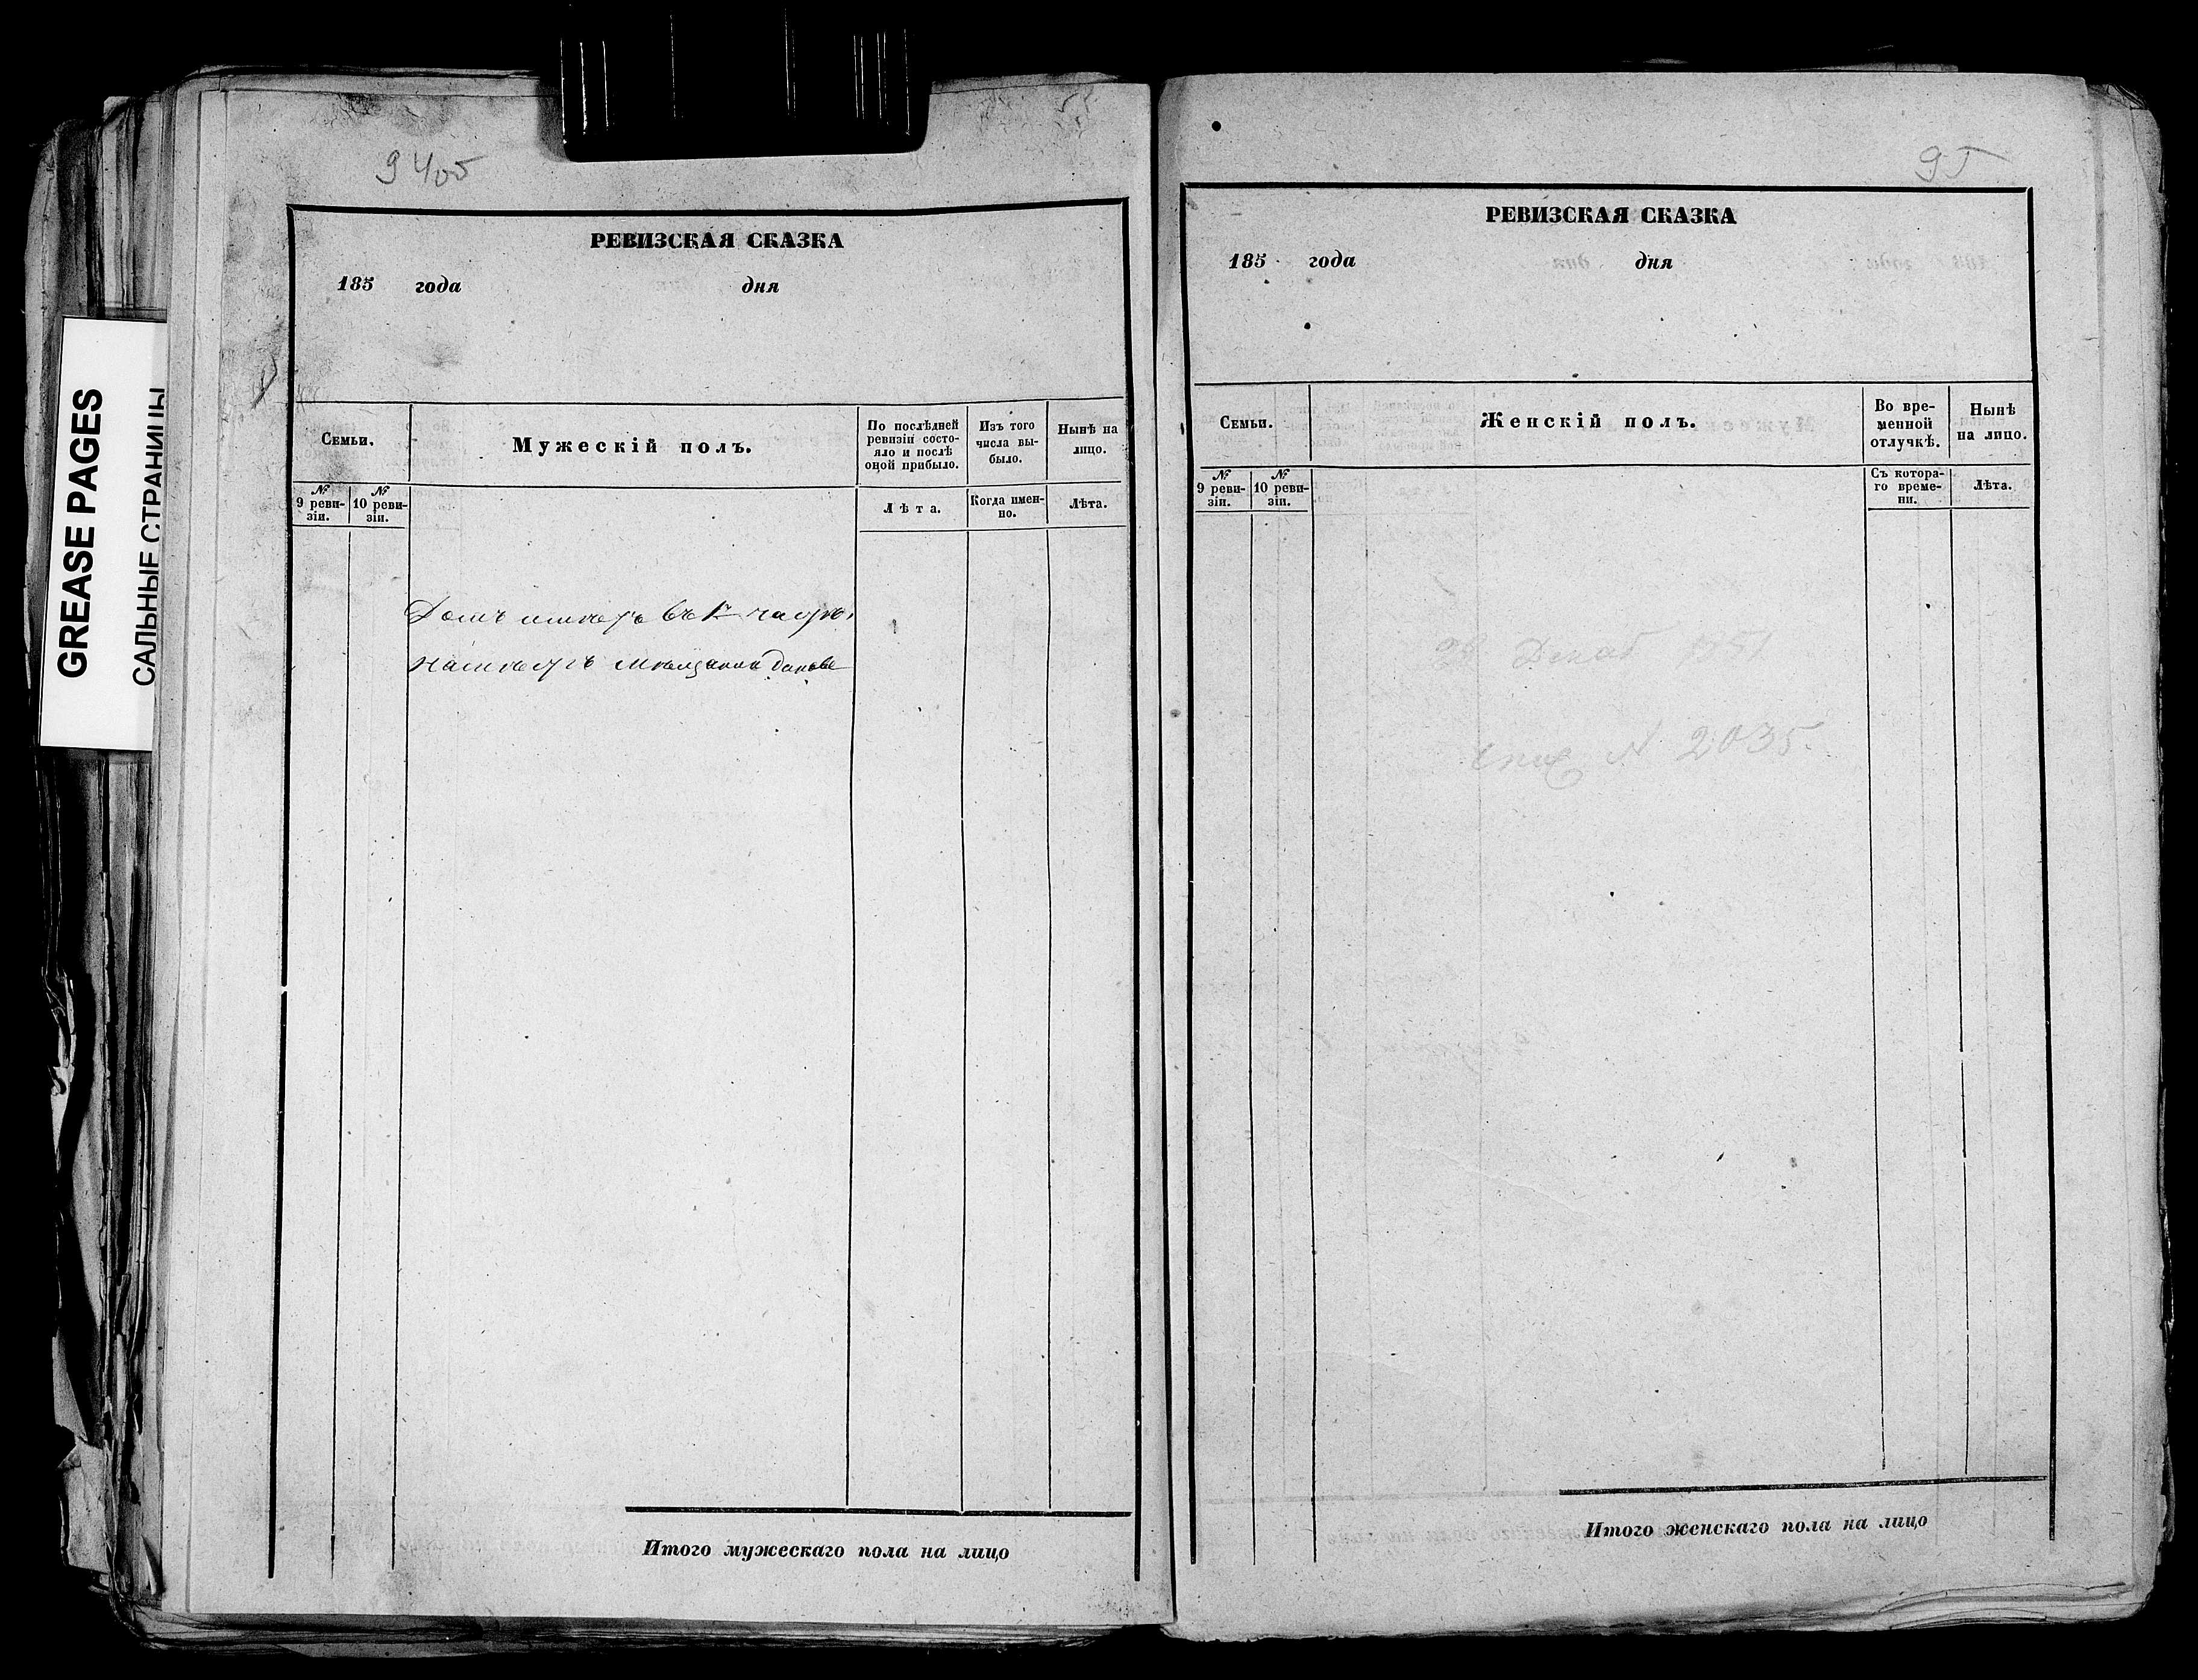 GREASE PAGES
САЛЬНЫЕ СТРАНИЦЫ
94об
РЕВИЗСКАЯ СКАЗКА
185 года дня
Семьи.
Мужескій полъ.
По послѣдней ревизіи состо-
яло и послѣ
оной прибыло.
Изъ того
числа вы-
было.
Нынѣ на
лицо.
№
9 реви-
зіи.
№
10 реви-
зіи.
Лѣта.
Когда имен-
но.
Лѣта.
Домъ имѣетъ въ 1й части
Итого мужескаго пола на лицо
95
РЕВИЗСКАЯ СКАЗКА
185 года дня
Семьи.
Женскій полъ.
Во вре-
менной
отлучкѣ.
Нынѣ
на лицо.
№
9 реви-
зіи.
№
10 реви-
зіи.
Съ котора-
го време-
ни.
Лѣта.
Декаб 1851
№ 2035.
Итого женскаго пола на лицо